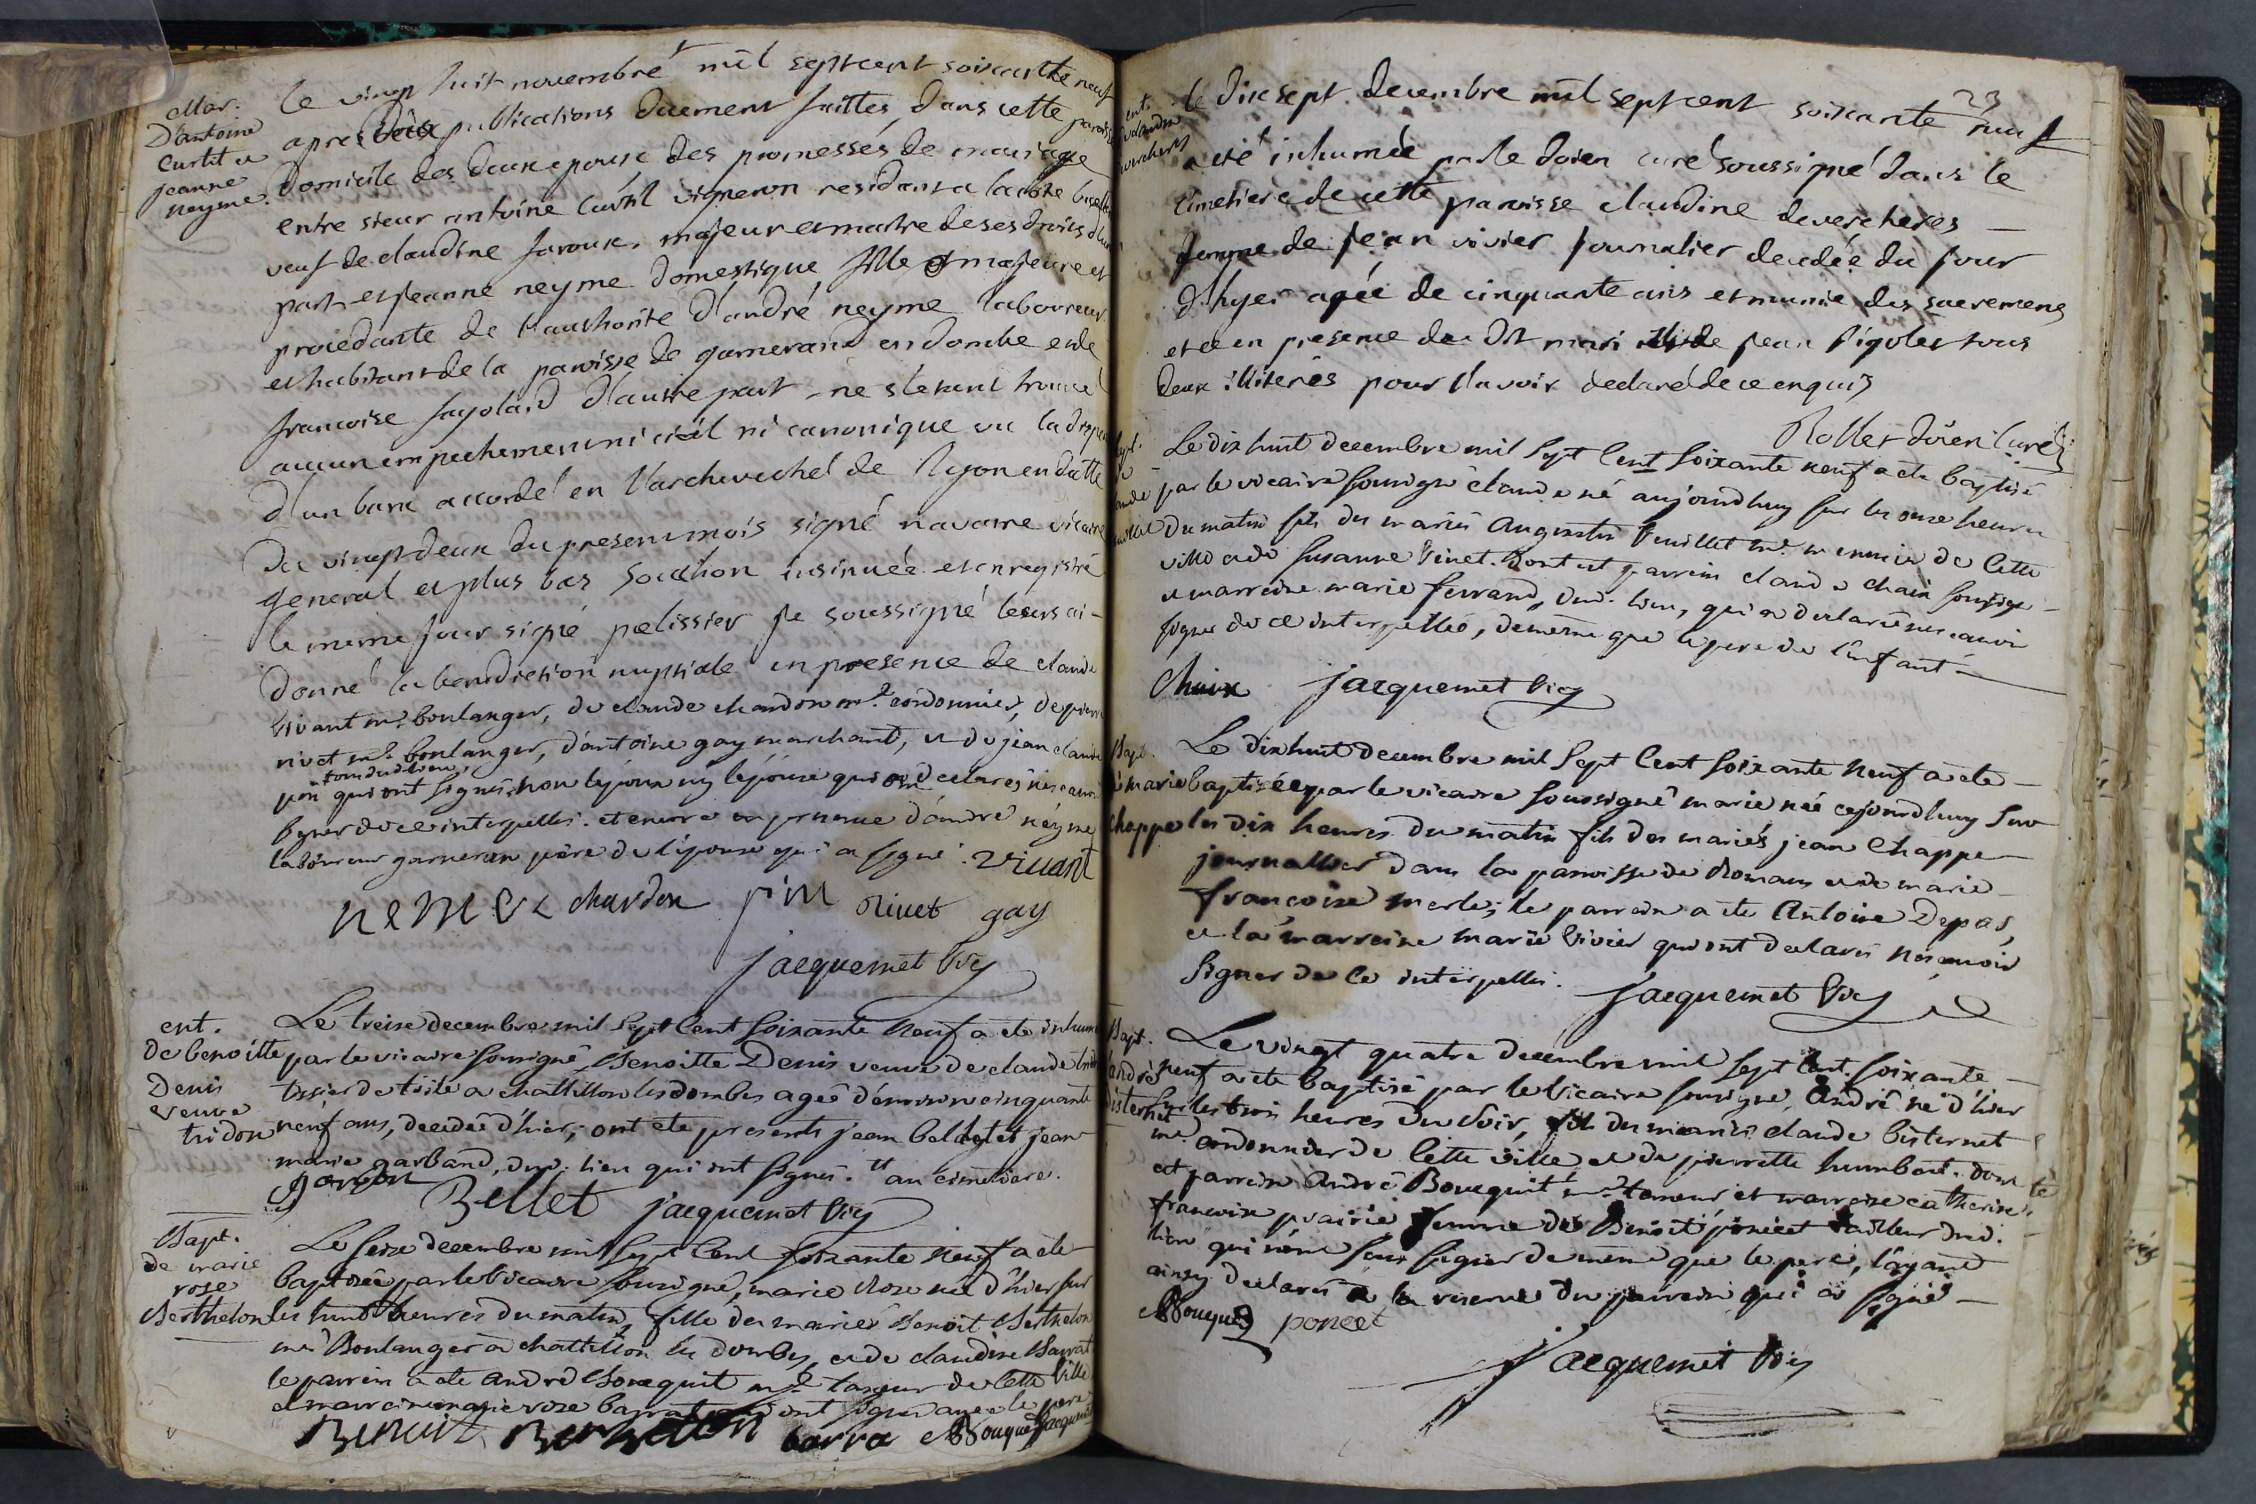 Mar.
D'antoine
Curtil et
jeanne
neyme.
le vingt huit novembre mil sept cent soixante neuf
apres deux publications duement faittes, dans cette paroisse
domicile des deux epoux des promesses de mariage
entre sieur antoine Curtil vigneron residant a la
veuf de claudine janoux, majeur et maitre de ses droits d'une
part et jeanne neyme domestique fille majeure et
procedante de l'authorité d'andré neyme laboureur
et habitant de la paroisse de garnerand en dombe et de
francoise fayolard d'autre part ne s'etant trouvé
aucun empechement ni civil ni canonique vu la dispense
d'un banc accordé en l'archeveché de Lyon en datte
du vingt deux du present mois signé navarre vicaire
general et plus bas Souchon insinuée et enregistré
le meme jour signé pelissier je soussigné leurs ai
donné la benediction nuptiale en presence de claude
vivant me. boulanger, de claude chardon me. cordonnier, de pierre
rivet me. boulanger, d'antoine gay marchand, et de jean claude
tous dud. lieu,
pin qui ont signés, non l'epoux ny l'épouse qui ont declarés ne scavoir
signer de ce interpellés. et encore en presence d'andré néyme
laboureur garneran père de l'épouse qui a signé. vivant
nemez chardon pin Rivet gay
jacquemet vic
ent.
de benoitte
Denis
veuve
tridon
Le treize decembre mil sept cent soixante neuf a été inhumé
par le vicaire soussigné Benoitte Denis veuve de claude tridon
tissier de toile a chattillon les dombes agée d'environ cinquante
neuf ans, decedée d'hier; ont été presents jean bellet et jean
marie garband, dud. lieu qui ont signés. au cimetiere.
Bellet jacquemet vic
Bapt.
de marie
rose
Berthelon
Le seize decembre mil sept cent soixante neuf a été
baptisée par le vicaire soussigné, marie Rose née d'hier sur
les huit heures du matin, fille des mariés Benoit Berthelon
me. Boulanger a chattillon les dombes, et de claudine Barrat
le parrein a été andré Bouquit me. tanneur de cette ville
et marreine marie rose barrat qui ont signé avec le pere
Benoit Berthelon barra Bouquet Jacquemet
23
ent.
claudine
vercheres
le dix sept decembre mil sept cent soixante neuf
a eté inhumée par le doien curé soussigné dans le
cimetiere de cette paroisse claudine devercheres
femme de jean vivier journalier decedée du jour
d'hyer agée de cinquante ans et munie des sacremens
et ce en presence du dit mari et de jean pigolet tous
deux illiterés pour l'avoir declaré de ce enquis
Rollet doien curé
Bapt.
de
claude
Le dix huit decembre mil sept cent soixante neuf a été baptisé
par le vicaire soussigné claude né aujourdhuy sur les onze heures
du matin fils des mariés augustin veuillet me. menuisier de cette
ville et de susanne vinet. dont est parrein claude chaix soussigné
et marreine marie ferrand, dud. lieu, qui a declaré ne scavoir
signer de ce interpellée, de meme que le pere de l'enfant
Chaix jacquemet vic
Bapt.
marie
chappe
Le dix huit decembre mil sept cent soixante neuf a été
baptisée par le vicaire soussigné marie née cejourdhuy sur
les dix heures du matin fils des mariés jean Chappe
journallier dans la paroisse de Romans et de marie
francoise merle; le parrein a été antoine Depas,
et la marreine marie vivier qui ont declarés ne scavoir
signer de ce interpellés. jacquemet vic
Bapt.
andré
bisternet
Le vingt quatre decembre mil sept cent soixante
neuf a été baptisé par le vicaire soussigné, andré né d'hier
sur les trois heures du soir, fils des mariés claude bisternet
me. cordonnier de cette ville et de pierrette humbert. dont
est parrein andré Bouquit me. tanneur et marreine catherine
francoise prairie femme de Benoit poncet tailleur dud.
lieu qui n'ont scus signer de meme que le pere, l'ayant
ainsy declarés a la reserve du parrein qui a signé
Bouquet poncet
jacquemet vic